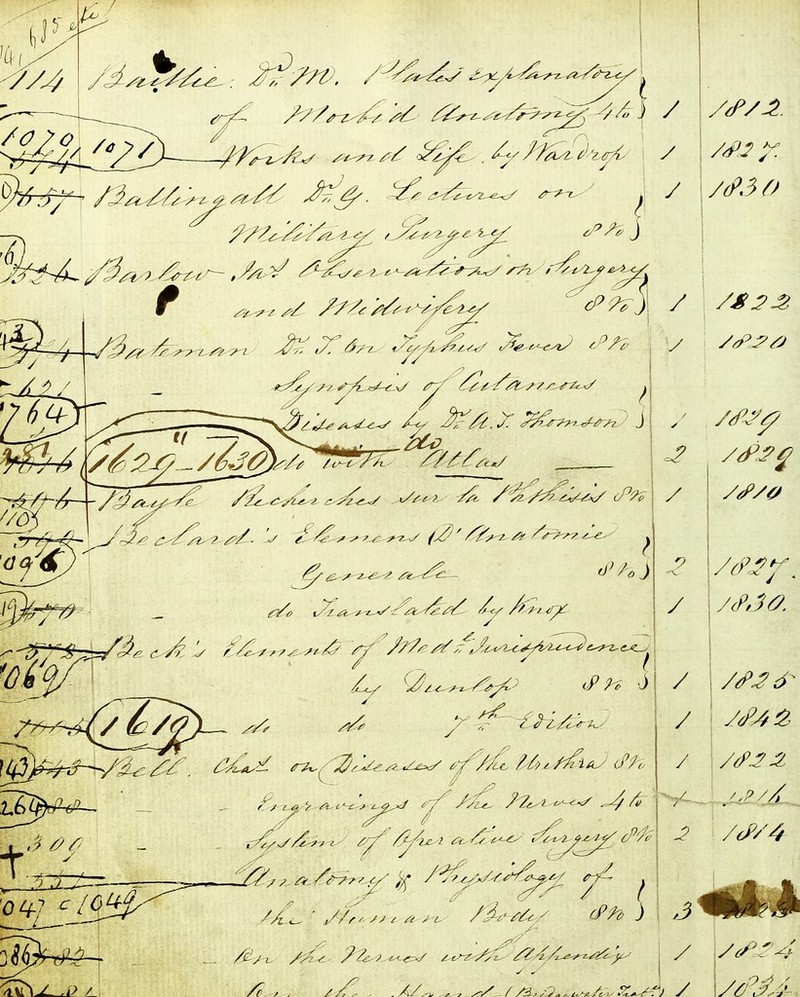 685 etc
114 Baillie. Dr. M. Plates explanatory
of Morbid Anatomy 4to } 1 1812.
1070, 1071 574 Works and Life by Wardrop 1 1827.
657 Ballingall Dr. G. Lectures on 1 1830
Military Surgery 8vo }
526 Barlow Jas. Observations on Surgery
and Midwifery 8vo } 1 1822
Bateman Dr. T. On Typhus Fever 8vo 1 1820
621 - Synopsis of Cutaneous
764 Diseases by Dr. A. T. Thomson } 1 1829
1629 - 1630 do with do Atlas — 2 1829
596 Bayle Recherches sur la Phthisis 8vo 1 1810
110
590 Beclard's Elemens D'Anatomie
1096 Generale 8vo } 2 1827.
670 - do Translated by Knox 1 1830.
572 Beck's Elements of Medl. Jurisprudence
1069 by Dunlop 8vo } 1 1825
1619 do do 7th Edition 1 1842
543 Bell. Chas. on Diseases of the Urethra 8vo 1 1822
264 - - Engravings of the Nerves 4to 1 1816
309 - - System of Operative Surgery 8vo 2 1814
551 Anatomy & Physiology of
1047 c 1049 the Human Body 8vo } 3 1823
582 - On the Nerves with Appendix 1 1824
On the Hand (Bridgewater Treat.) 1 1834